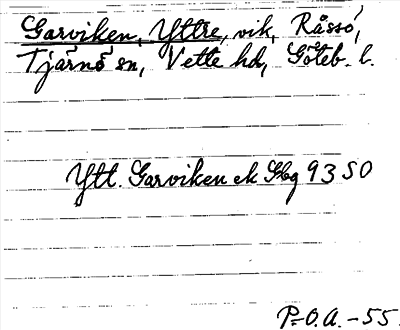 Garviken, Yttre, vik, Råssö,
Tjärnö sn, Vette hd, Göteb. l.
Ytt. Garviken ek Sbg 93 SO
P.O.A. -55.